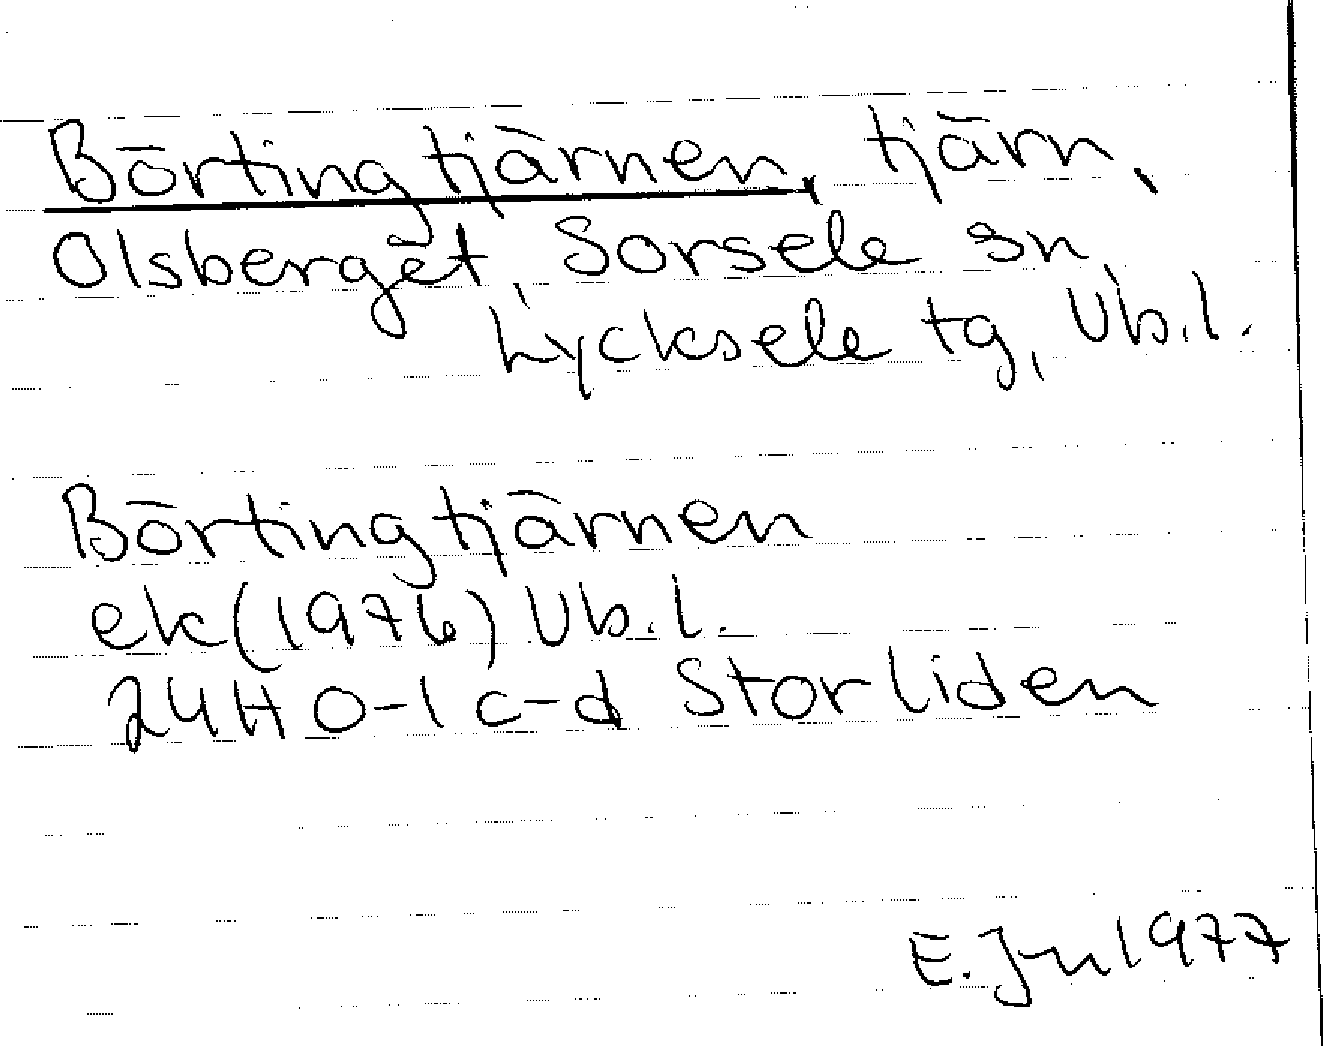 Börtingtjärnen, tjärn,
Olsberget, Sorsele sn,
Lycksele tg, Vb.l.
Börtingtjärnen
ek (1976) Vb.l.
24H 0-1 c-d Storliden
E. Jn 1977